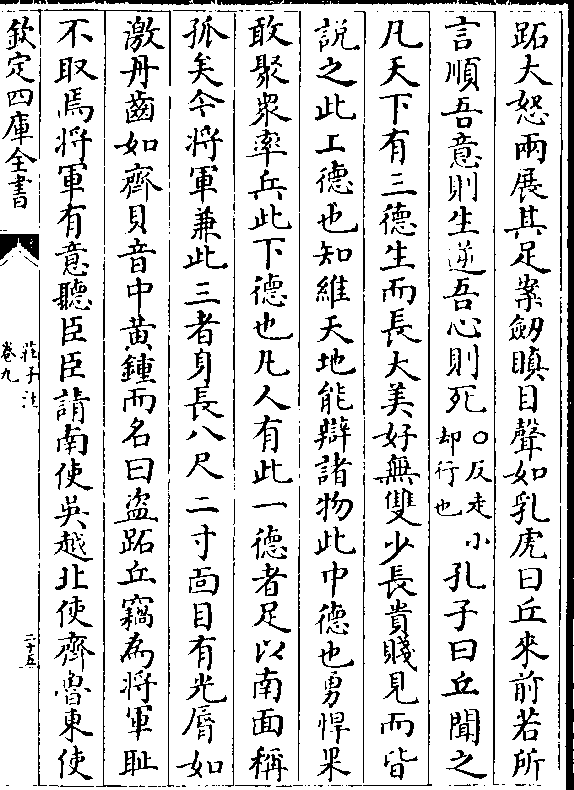 跖大怒兩展其足案劒瞋目聲如乳虎曰丘來前若所
言順吾意則生逆吾心則死○反走小却行也孔子曰丘聞之
凡天下有三德生而長大美好無雙少長貴賤見而皆
說之此上德也知維天地能辯諸物此中德也勇悍果
敢聚衆率兵此下德也凡人有此一德者足以南面稱
孤矣今將軍兼此三者身長八尺二寸面目有光脣如
激丹齒如齊貝音中黃鍾而名曰盜跖丘竊為將軍耻
不取焉將軍有意聽臣臣請南使吳越北使齊魯東使
欽定四庫全書
莊子注
卷九
二十五